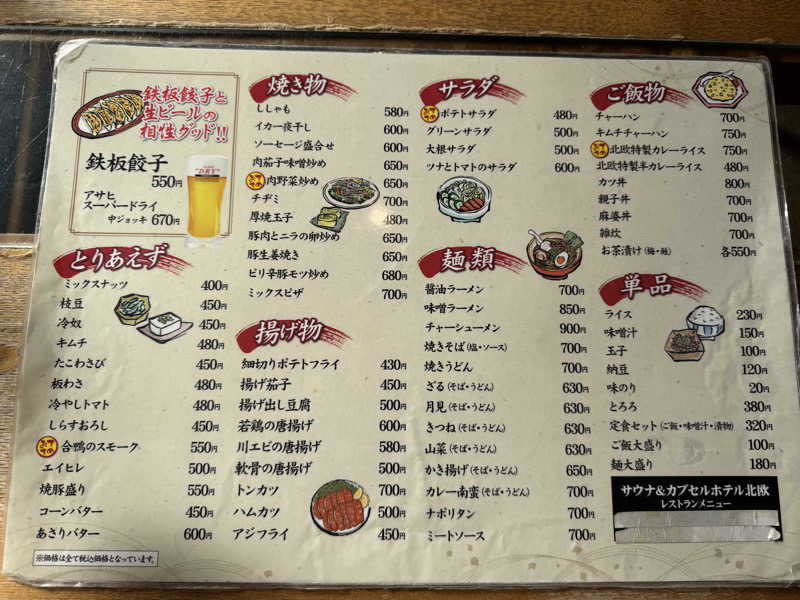 鉄板餃子と
生ビールの
相性グッド!!
鉄板餃子
550円
アサヒ
スーパードライ
中ジョッキ 670円
とりあえず
ミックスナッツ 400円
枝豆 450円
冷奴 450円
キムチ 480円
たこわさび 450円
板わさ 480円
冷やしトマト 480円
しらすおろし 450円
おすすめ 合鴨のスモーク 550円
エイヒレ 500円
焼豚盛り 550円
コーンバター 450円
あさりバター 600円
※価格は全て税込価格となっています。
焼き物
ししゃも 580円
イカ一夜干し 600円
ソーセージ盛合せ 600円
肉茄子味噌炒め 650円
おすすめ 肉野菜炒め 650円
チヂミ 700円
厚焼玉子 480円
豚肉とニラの卵炒め 650円
豚生姜焼き 650円
ピリ辛豚モツ炒め 680円
ミックスピザ 700円
揚げ物
細切りポテトフライ 430円
揚げ茄子 450円
揚げ出し豆腐 500円
若鶏の唐揚げ 600円
川エビの唐揚げ 580円
軟骨の唐揚げ 500円
トンカツ 700円
ハムカツ 500円
アジフライ 450円
サラダ
おすすめ ポテトサラダ 480円
グリーンサラダ 500円
大根サラダ 500円
ツナとトマトのサラダ 600円
麺類
醤油ラーメン 700円
味噌ラーメン 850円
チャーシューメン 900円
焼きそば(塩・ソース) 700円
焼きうどん 700円
ざる(そば・うどん) 630円
月見(そば・うどん) 630円
きつね(そば・うどん) 630円
山菜(そば・うどん) 630円
かき揚げ(そば・うどん) 650円
カレー南蛮(そば・うどん) 700円
ナポリタン 700円
ミートソース 700円
ご飯物
チャーハン 700円
キムチチャーハン 750円
おすすめ 北欧特製カレーライス 750円
北欧特製半カレーライス 480円
カツ丼 800円
親子丼 700円
麻婆丼 700円
雑炊 700円
お茶漬け(梅・鮭) 各550円
単品
ライス 230円
味噌汁 150円
玉子 100円
納豆 120円
味のり 20円
とろろ 380円
定食セット(ご飯・味噌汁・漬物) 320円
ご飯大盛り 100円
麺大盛り 180円
サウナ&カプセルホテル北欧
レストランメニュー